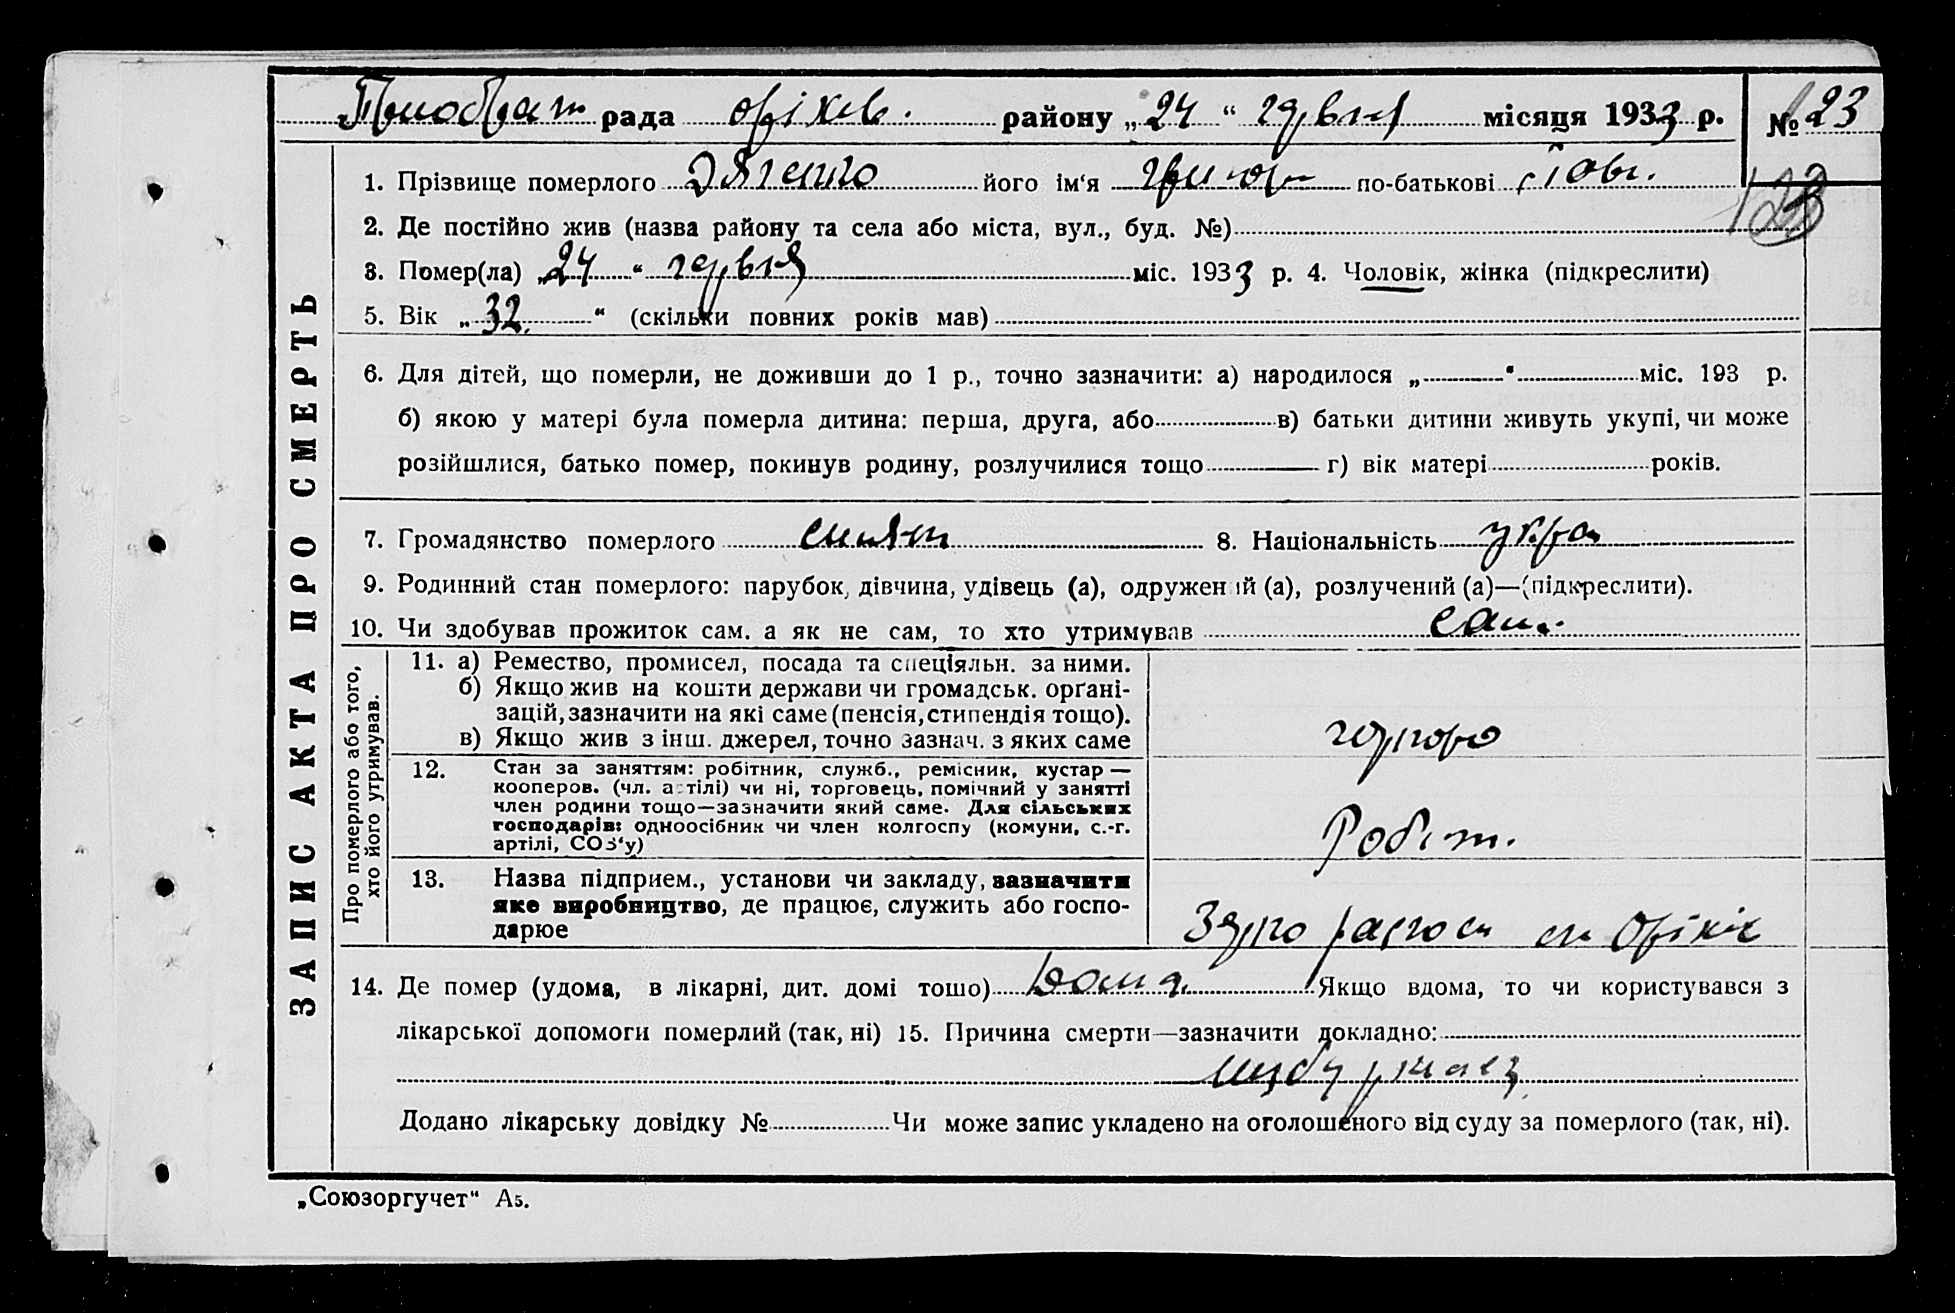 рада оріхів. району „24“ червня місяця 1933 р. № 23
1. Прізвище померлого його ім‘я Григор по-батькові
123
2. Де постійно жив (назва району та села або міста, вул., буд. №)
3. Помер(ла) „24“ червня міс. 1933 р. 4. Чоловік, жінка (підкреслити)
5. Вік „32.“ (скільки повних років мав)
6. Для дітей, що померли, не доживши до 1 р., точно зазначити: а) народилося „ “ міс. 193 р.
б) якою у матері була померла дитина: перша, друга, або в) батьки дитини живуть укупі, чи може
розійшлися, батько помер, покинув родину, розлучилися тощо г) вік матері років.
7. Громадянство померлого 8. Національність укра
9. Родинний стан померлого: парубок, дівчина, удівець (а), одружений (а), розлучений (а)—(підкреслити).
10. Чи здобував прожиток сам. а як не сам, то хто утримував сам.
ЗАПИС АКТА ПРО СМЕРТЬ
Про померлого або того,
хто його утримував.
11. а) Ремество, промисел, посада та спеціяльн. за ними.
б) Якщо жив на кошти держави чи громадськ. орґані-
зацій, зазначити на які саме (пенсія, стипендія тощо).
в) Якщо жив з інш. джерел, точно зазнач. з яких саме
12. Стан за заняттям: робітник, служб., ремісник, кустар —
кооперов. (чл. артілі) чи ні, торговець, помічний у занятті
член родини тощо—зазначити який саме. Для сільських
господарів: одноосібник чи член колгоспу (комуни, с.-г.
артілі, СОЗ‘у)
Робіт.
13. Назва підприєм., установи чи закладу, зазначити
яке виробництво, де працює, служить або госпо-
дарює
14. Де помер (удома, в лікарні, дит. домі тощо) Дома. Якщо вдома, то чи користувався з
лікарської допомоги померлий (так, ні) 15. Причина смерти—зазначити докладно:
Додано лікарську довідку № Чи може запис укладено на оголошеного від суду за померлого (так, ні).
„Союзоргучет“ А5.